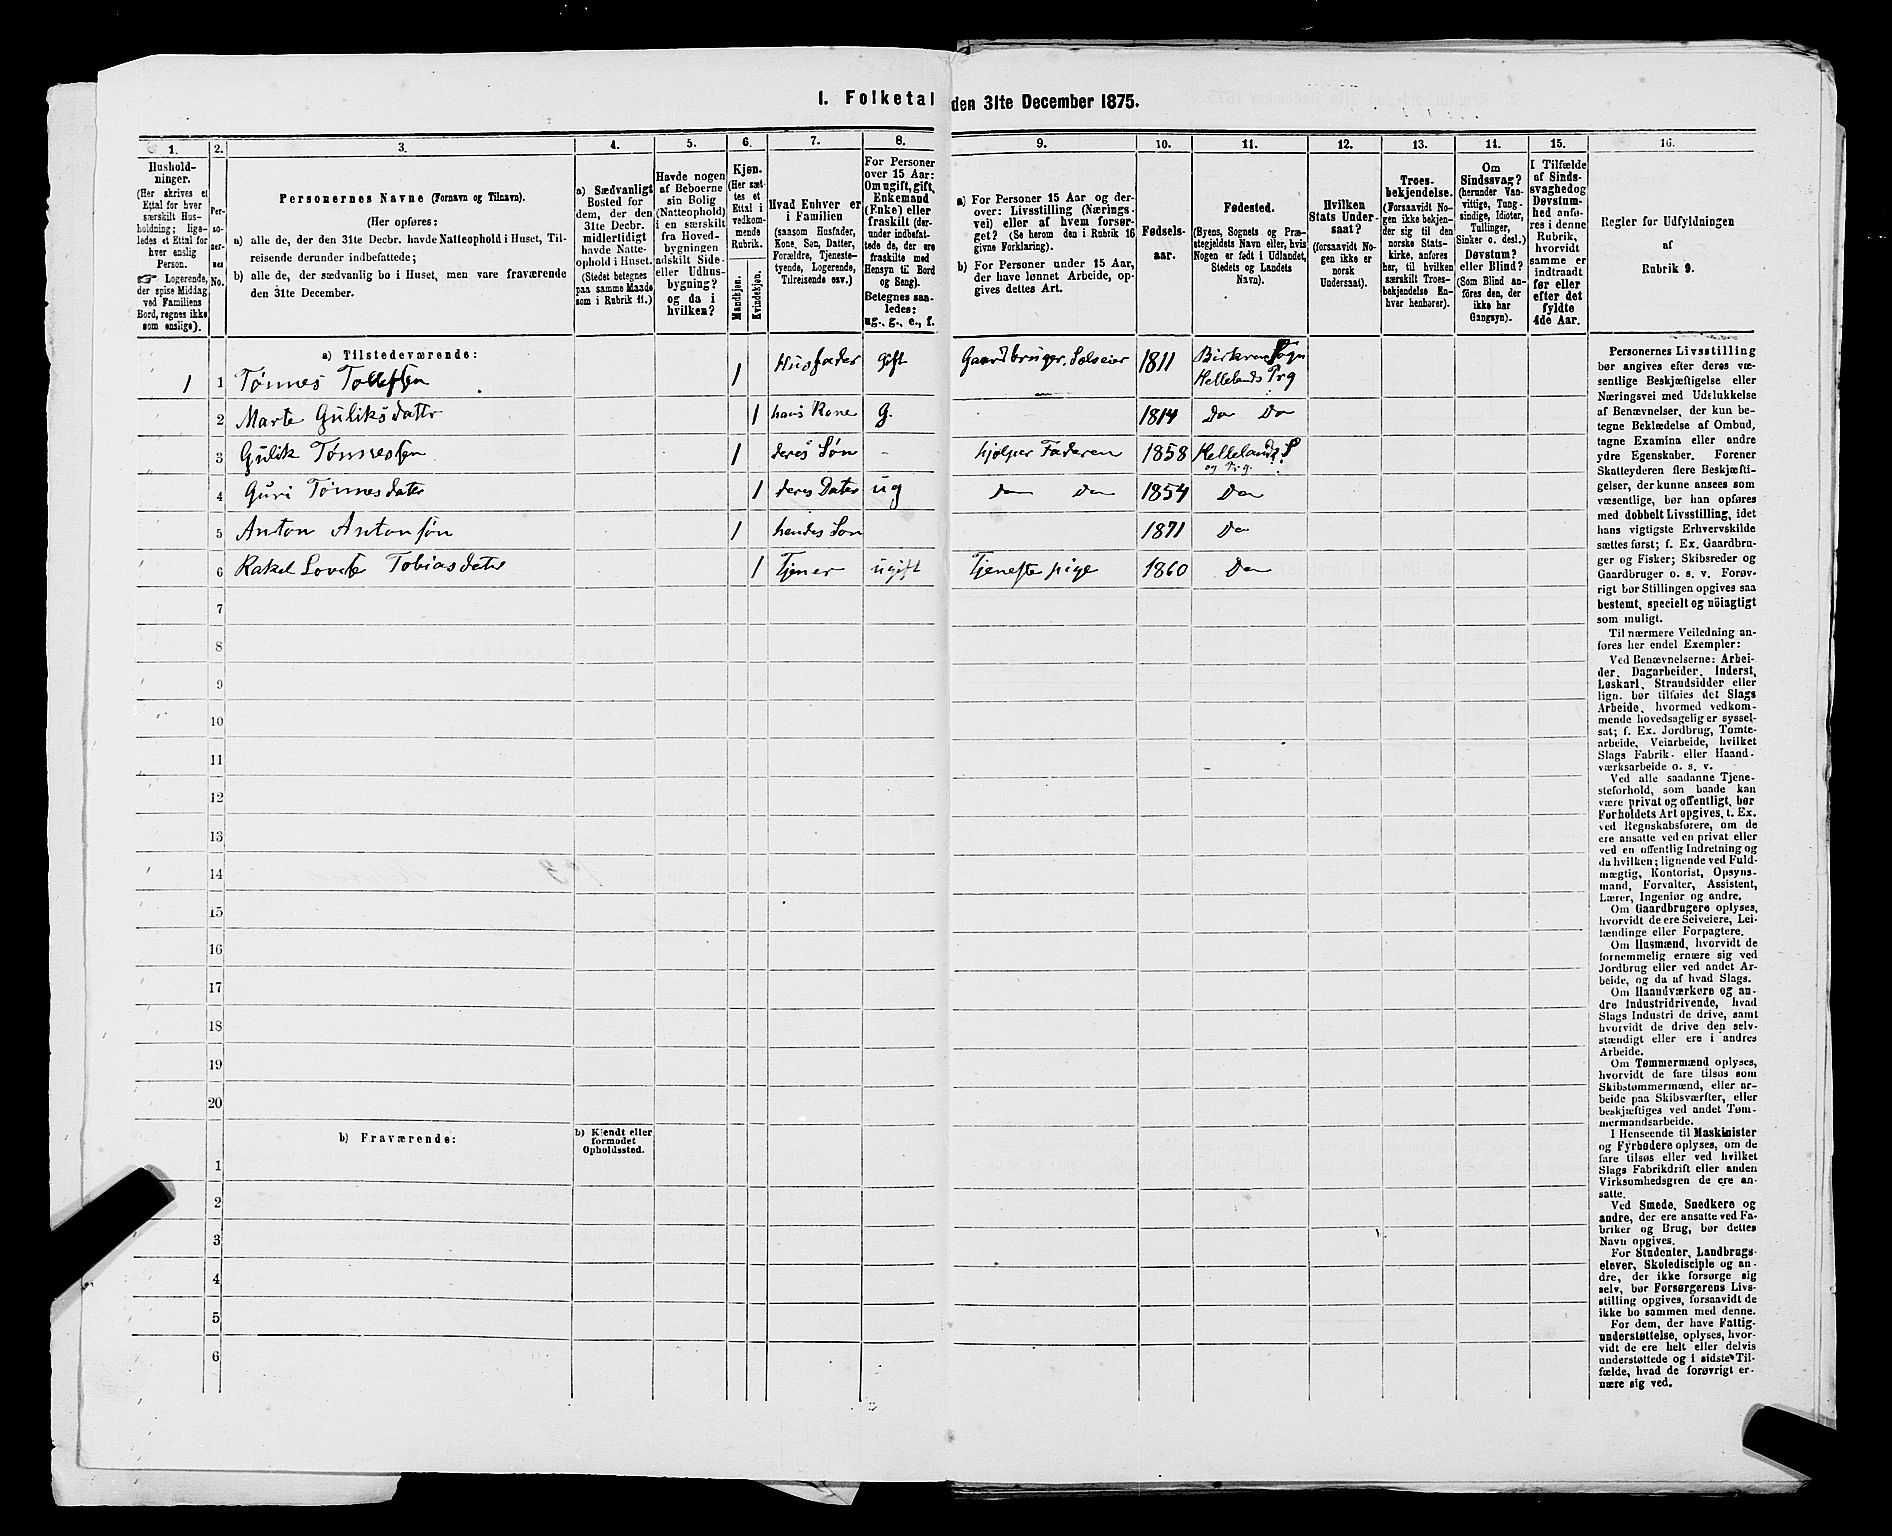 I. Folketal den 31te December 1875.
1. 2. 3. 4. 5. 6. 7. 8. 9. 10. 11. 12. 13. 14. 15. 16.
Hushold-
ninger.
(Her skrives et
Ettal for hver
særskilt Hus-
holdning; lige-
ledes et Ettal for
hver enslig
Person.
☞ Logerende,
der spise Middag
ved Familiens
Bord, regnes ikke
som enslige).
Per-
so-
ner-
nes
No.
Personernes Navne (Fornavn og Tilnavn).
(Her opføres:
a) alle de, der den 31te Decbr. havde Natteophold i Huset, Til-
reisende derunder indbefattede;
b) alle de, der sædvanlig bo i Huset, men vare fraværende
den 31te December.
a) Sædvanligt
Bosted for
dem, der den
31te Decbr.
midlertidigt
havde Natte-
ophold i Huset.
(Stedet betegnes
paa samme Maade
som i Rubrik 11.)
Havde nogen
af Beboerne
sin Bolig
(Natteophold)
i en særskilt
fra Hoved-
bygningen
adskilt Side-
eller Udhus-
bygning?
og da i
hvilken?
Kjøn.
(Her sæt-
tes et
Ettal i
vedkom-
mende
Rubrik.
Mandkjøn.
Kvindekjøn.
Hvad Enhver er
i Familien
(saasom Husfader,
Kone, Søn, Datter,
Forældre, Tjeneste-
tyende, Logerende,
Tilreisende osv.)
For Personer
over 15 Aar:
Om ugift, gift,
Enkemand
(Enke) eller
fraskilt (der-
under indbefat-
tede de, der ere
fraskilte med
Hensyn til Bord
og Seng).
Betegnes saa-
ledes:
ug., g., e., f.
a) For Personer 15 Aar og der-
over: Livsstilling (Nærings-
vei) eller af hvem forsør-
get? (Se herom den i Rubrik 16
givne Forklaring).
b) For Personer under 15 Aar,
der have lønnet Arbeide, op-
gives dettes Art.
Fødsels-
aar.
Fødested.
(Byens, Sognets og Præ-
stegjeldets Navn eller, hvis
Nogen er født i Udlandet,
Stedets og Landets
Navn).
Hvilken
Stats Under-
saat?
(forsaavidt No-
gen ikke er
norsk
Undersaat).
Troes-
bekjendelse.
(Forsaavidt No-
gen ikke bekjen-
der sig til den
norske Stats-
kirke, anføres
her, til hvilken
særskilt Troes-
bekjendelse En-
hver henhører).
Om
Sindssvag?
(herunder Van-
vittige, Tung-
sindige, Idioter,
Tullinger,
Sinker o. desl.)
Døvstum?
eller Blind?
(Som Blind an-
føres den, der
ikke har
Gangsyn).
I Tilfælde
af Sinds-
svaghed og
Døvstum-
hed anfø-
res i denne
Rubrik,
hvorvidt
samme er
indtraadt
før eller
efter det
fyldte
4de Aar.
Regler for Udfyldningen
af
Rubrik 9.
a) Tilstedeværende:
1 1 Tønnes Tollefsen 1 Husfader gift Gaardbruger, Selveier 1811 Birkrem Sogn
Hellelands Prg
2 Marte Guliksdattr 1 hans Kone g. 1814 Do Do
3 Gulik Tønnessen 1 deres Søn - hjelper Faderen 1858 Hellelands S
og Prg.
4 Guri Tønnesdatr 1 deres Dater ug do do 1854 Do
5 Anton Antonsøn 1 hendes Søn 1871 Do
6 Rakel Lovise Tobiasdatr 1 Tjener ugift Tjenestepige 1860 Do
7
8
9
10
11
12
13
14
15
16
17
18
19
20
b) Fraværende:
b) Kjendt eller
formodet
Opholdssted.
1
2
3
4
5
6
Personernes Livsstilling
bør angives efter deres væ-
sentlige Beskjæftigelse eller
Næringsvei med Udelukkelse
af Benævnelser, der kun be-
tegne Beklædelse af Ombud,
tagne Examina eller andre
ydre Egenskaber. Forener
Skatteyderen flere Beskjæfti-
gelser, der kunne ansees som
væsentlige, bør han opføres
med dobbelt Livsstilling, idet
hans vigtigste Erhvervskilde
sættes først; f. Ex. Gaardbru-
ger og Fisker; Skibsreder og
Gaardbruger o. s. v. Forøv-
rigt bør Stillingen opgives saa
bestemt, specielt og nöiagtigt
som muligt.
Til nærmere Veiledning an-
føres her endel Exempler:
Ved Benævnelserne: Arbei-
der, Dagarbeider, Inderst,
Løskarl, Strandsidder eller
lign. bør tilføies det Slags
Arbeide, hvormed vedkom-
mende hovedsagelig er syssel-
sat; f. Ex. Jordbrug, Tomte-
arbeide, Veiarbeide, hvilket
Slags Fabrik- eller Haand-
værksarbeide o. s. v.
Ved alle saadanne Tjene-
steforhold, som baade kan
være privat og offentligt, bør
Forholdets Art opgives, t. Ex.
ved Regnskabsførere, om de
ere ansatte ved en privat eller
ved en offentlig Indretning og
da hvilken; lignende ved Fuld-
mægtig, Kontorist, Opsyns-
mand, Forvalter, Assistent,
Lærer, Ingeniør og andre.
Om Gaardbrugere oplyses,
hvorvidt de ere Selveiere, Lei-
lændinge eller Forpagtere.
Om Husmænd, hvorvidt de
fornemmelig ernære sig ved
Jordbrug eller ved andet Ar-
beide, og da af hvad Slags.
Om Haandværkere og an-
dre Industridrivende, hvad
Slags Industri de drive, samt
hvorvidt de drive den selv-
stændigt eller ere i andres
Arbeide.
Om Tømmermænd oplyses,
hvorvidt de fare tilsøs som
Skibstømmermænd, eller ar-
beide paa Skibsværfter, eller
beskjæftiges ved andet Tøm-
mermandsarbeide.
I Henseende til Maskinister
og Fyrbødere oplyses, om de
fare tilsøs eller ved hvilket
Slags Fabrikdrift eller anden
Virksomhedsgren de ere an-
satte.
Ved Smede, Snedkere og
andre, der ere ansatte ved Fa-
briker og Brug, bør dettes
Navn opgives.
For Studenter, Landbrugs-
elever, Skoledisciple og an-
dre, der ikke forsørge sig
selv, bør Forsørgerens Livs-
stilling opgives, forsaavidt de
ikke bo sammen med denne.
For dem, der have Fattig-
understøttelse, oplyses, hvor-
vidt de ere helt eller delvis
understøttede og i sidste Til-
fælde, hvad de forøvrigt er-
nære sig ved.